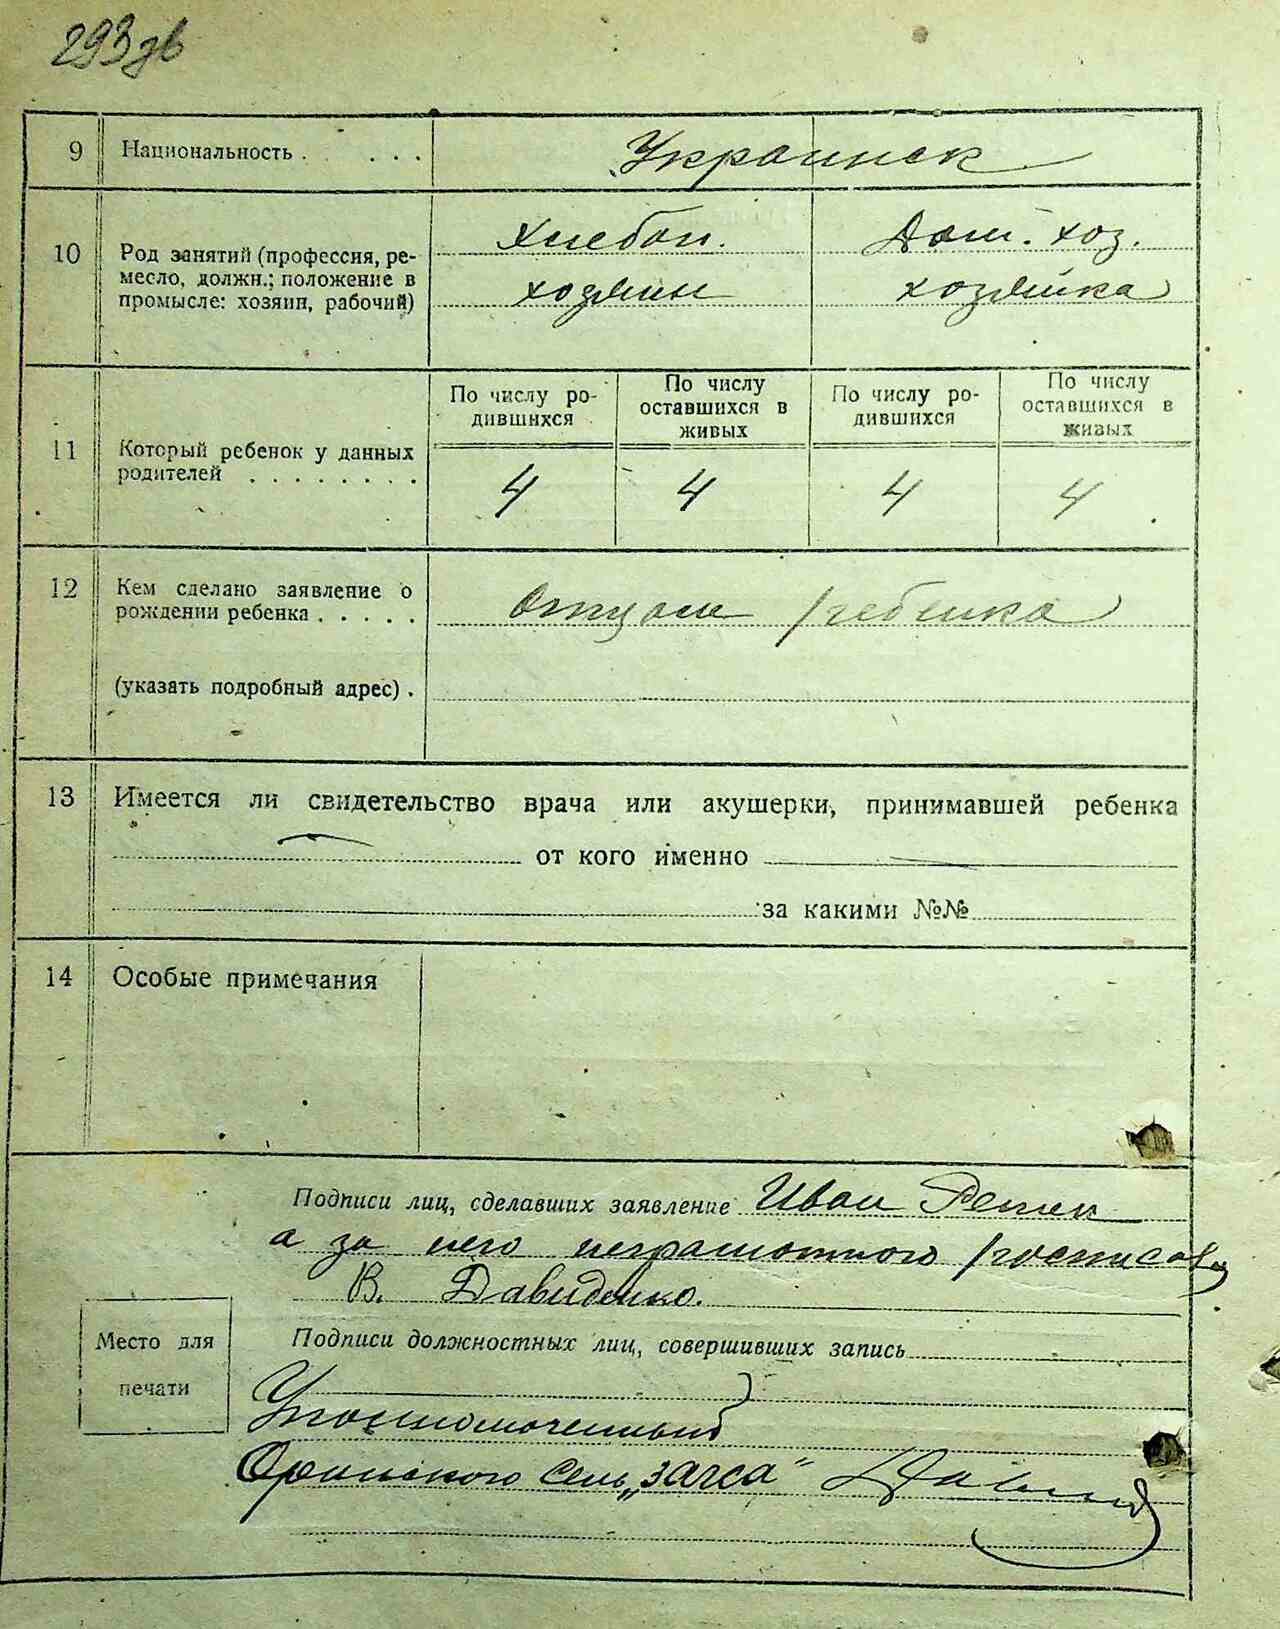 293 зв
9 Национальность . . . . . Украинск
10 Род занятий (профессия, ре- Хлебоп. Дом. хоз.
месло, должн.; положение в
промысле: хозяин, рабочий) хозяин хозяйка
По числу ро- По числу По числу ро- По числу
дившихся оставшихся в дившихся оставшихся в
живых живых
11 Который ребенок у данных
родителей . . . . . . . . 4 4 4 4
12 Кем сделано заявление о
рождении ребенка . . . . . Отцом ребенка
(указать подробный адрес) .
13 Имеется ли свидетельство врача или акушерки, принимавшей ребенка
— от кого именно —
за какими №№
14 Особые примечания
Подписи лиц, сделавших заявление Иван
а за него неграмотного
В. Давиденко.
Место для
печати
Подписи должностных лиц, совершивших запись
Уполномоченный
сель „загса“